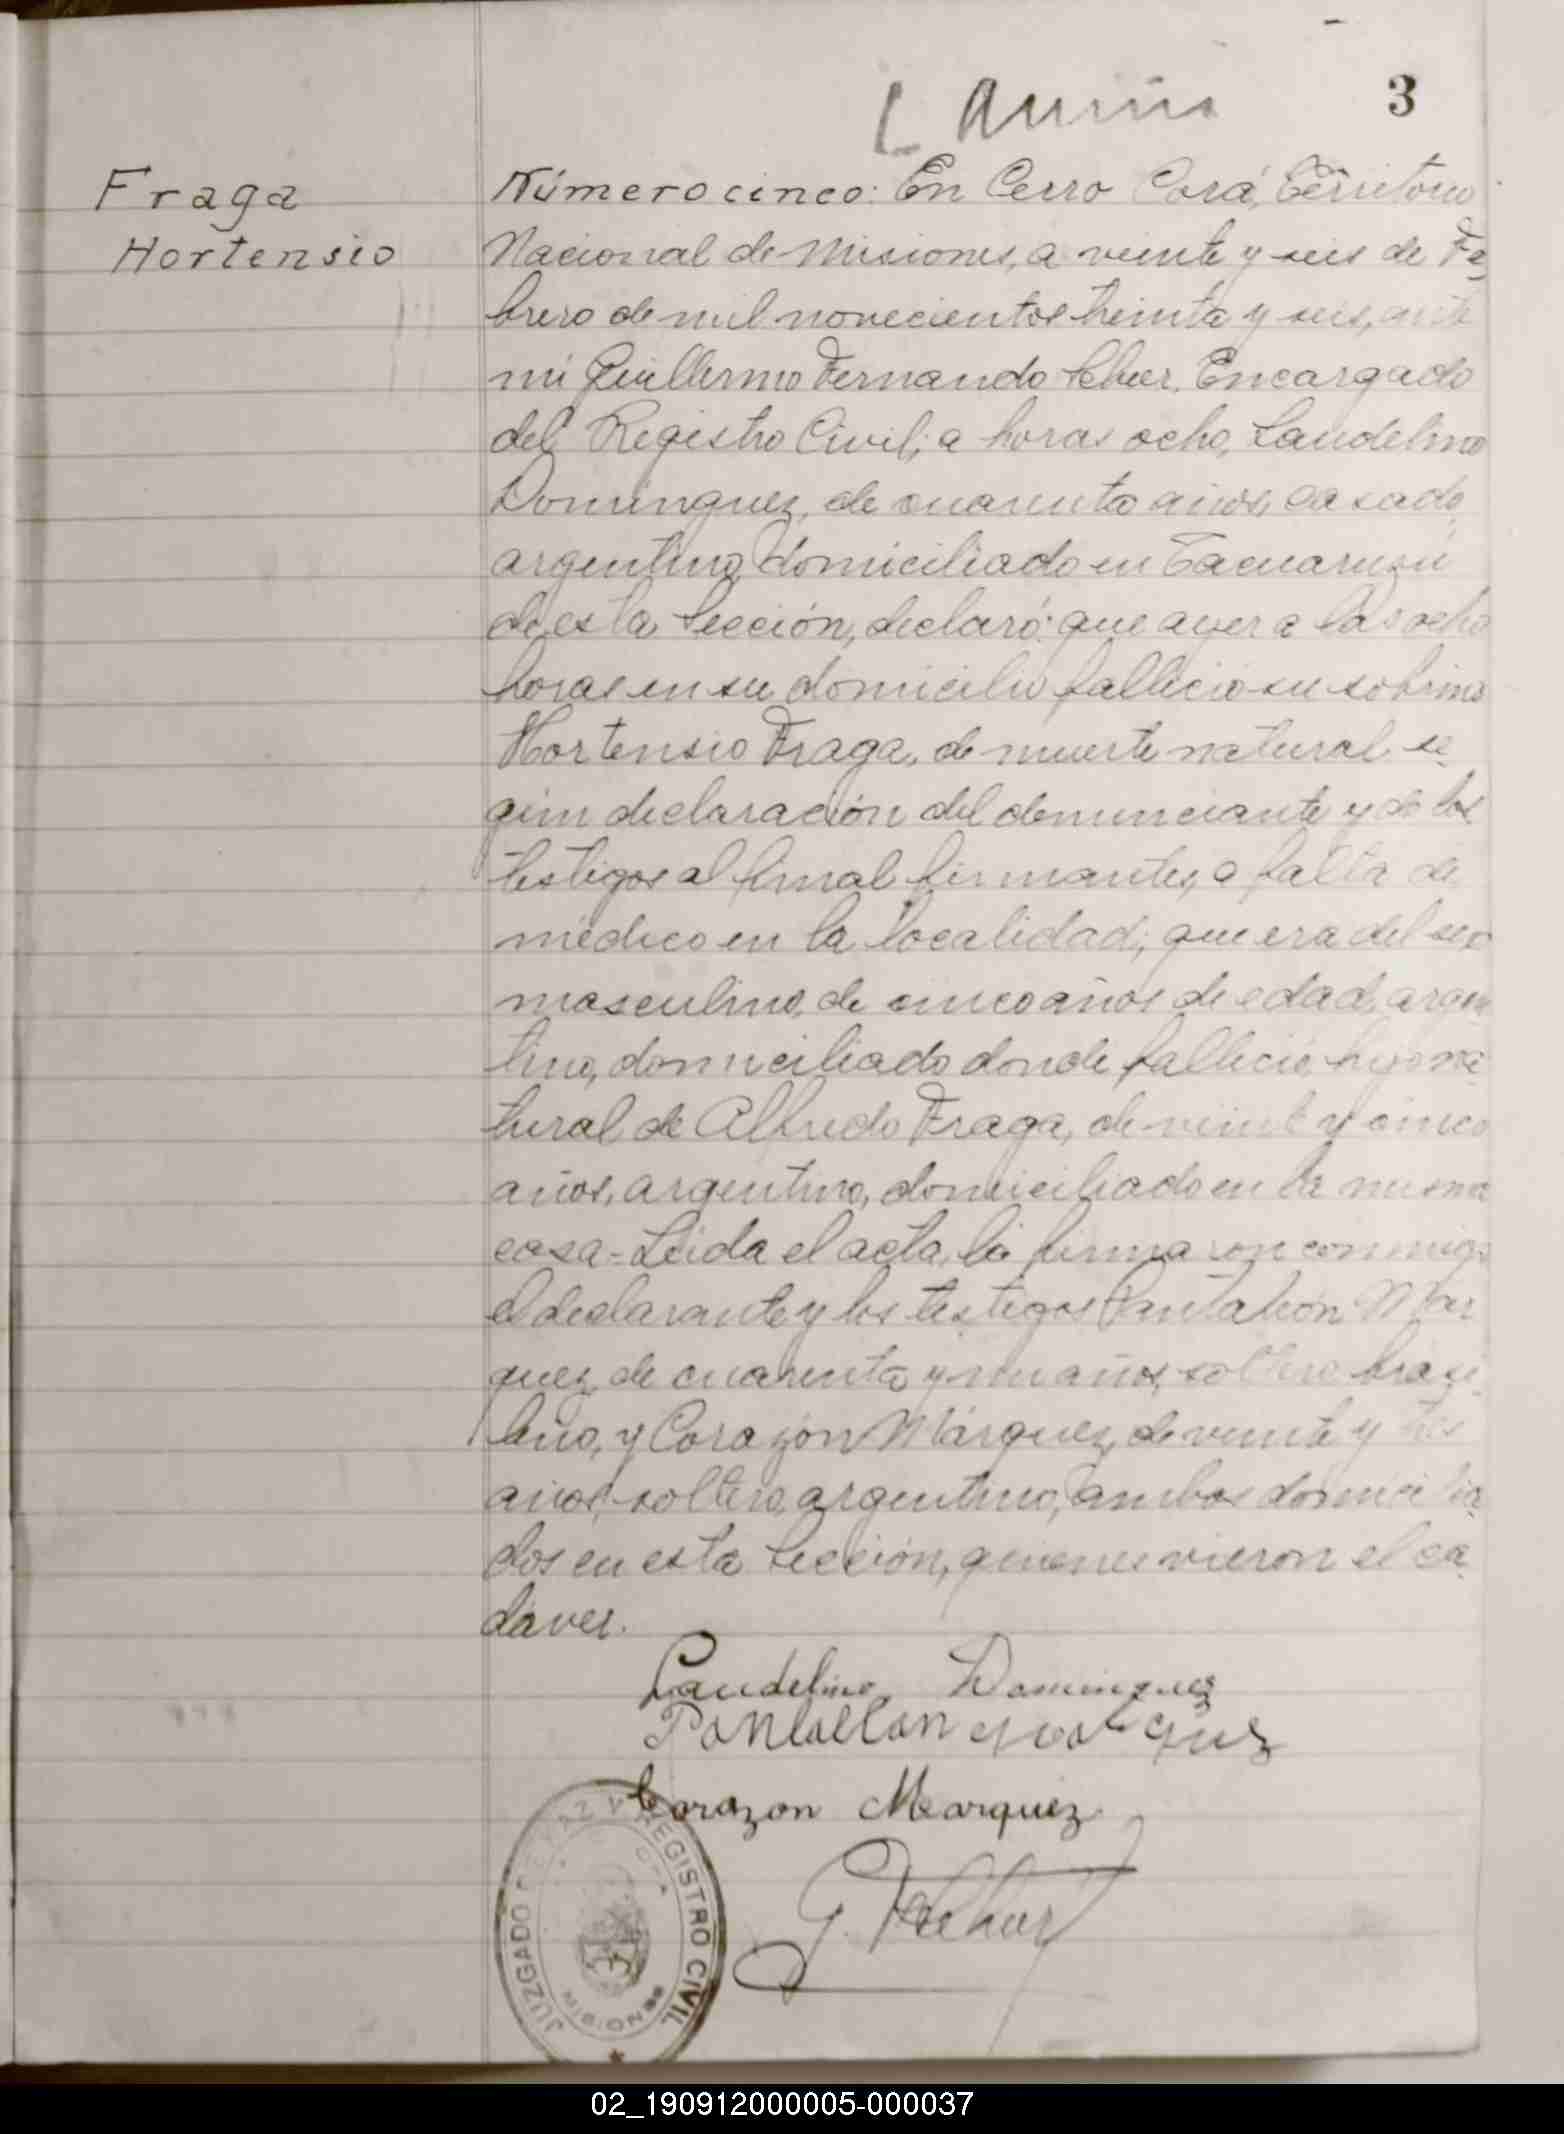 3
Fraga
Hortensio
Número cinco: En Cerro Corá, Territorio
Nacional de Misiones, a veinte y seis de Fe
brero de mil novecientos treinta y seis, ante
mi Guillermo Fernando Encargado
del Registro Civil; a horas ocho, Laudelino
Dominguez, de cuarenta años, casado,
argentino, domiciliado en Tacuaruzú
de esta Sección, declaró: que ayer a las ocho
horas en su domicilio falleció su sobrino
Hortensio Fraga, de muerte natural se
gún declaración del denunciante y de los
testigos al final firmantes, a falta de
médico en la localidad; que era del sexo
masculino, de cinco años de edad, argen
tino, domiciliado donde falleció, hijo na
tural de Alfredo Fraga, de veinte y cinco
años, argentino, domiciliado en la misma
casa - Leida el acta, la firmaron conmigo
el declarante y los testigos Pantaleón Mar
quez, de cuarenta y un años, soltero, brasi
leño, y Corazón Márquez, de veinte y tres
años, soltero, argentino, ambos domicilia
dos en esta Sección, quienes vieron el ca
dáver.
Laudelino Dominguez
Corazon Marquez
JUZGADO DE PAZ Y REGISTRO CIVIL
MISIONES
02_190912000005-000037